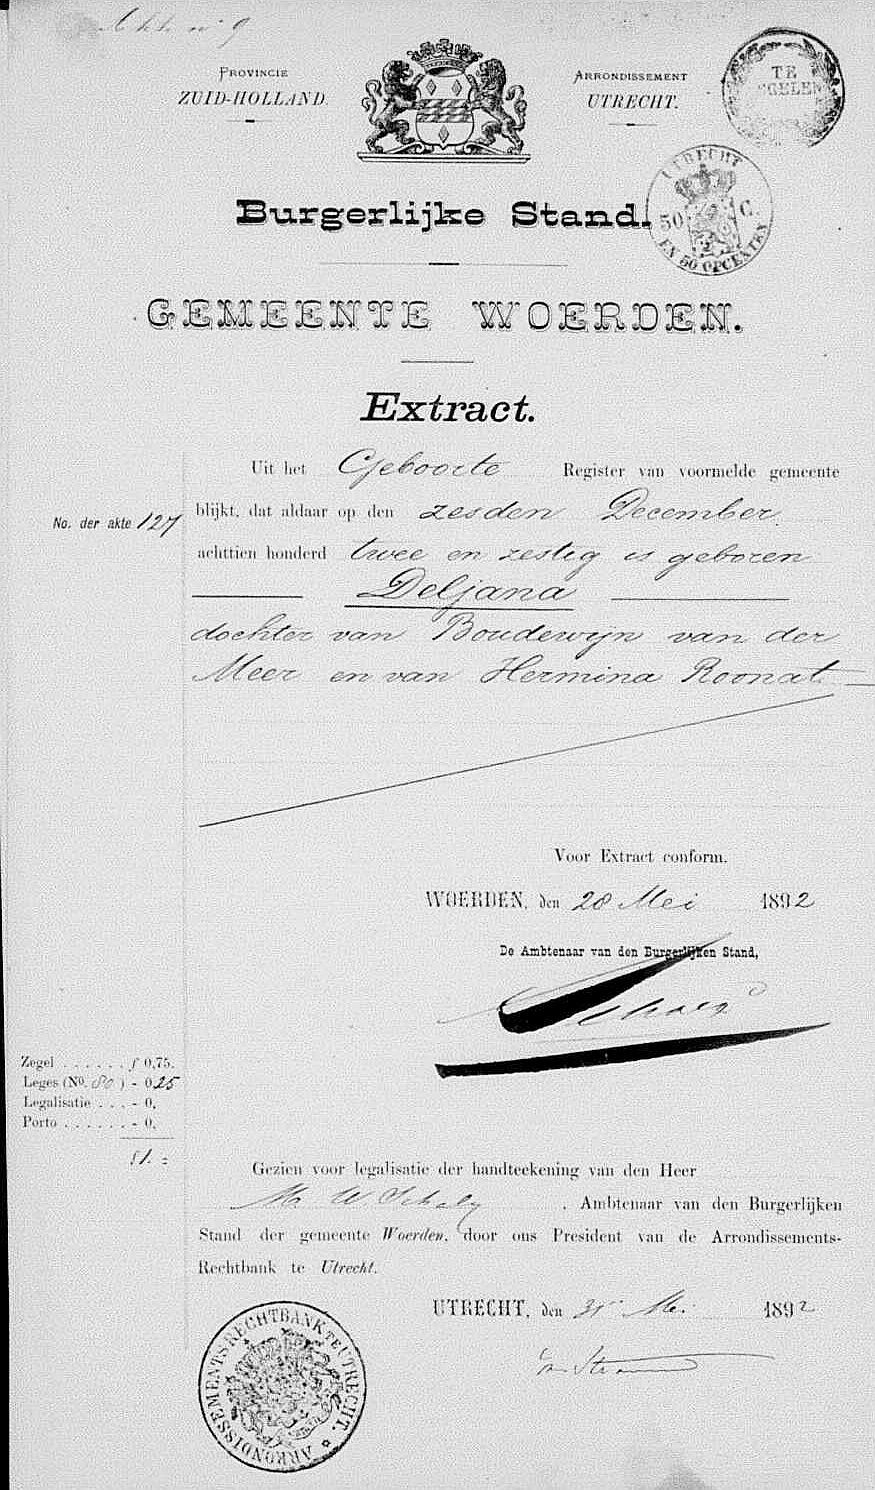 Akte no 9
PROVINCIE
ZUID-HOLLAND.
ARRONDISSEMENT
UTRECHT.
TE
UTRECHT
50 C.
EN 50 OPCENTEN
Burgerlijke Stand.
GEMEENTE WOERDEN.
Extract.
Uit het Geboorte Register van voormelde gemeente
No. der akte 127
blijkt, dat aldaar op den zesden December
achttien honderd twee en zestig is geboren
Deljana
dochter van Boudewijn van der
Meer en van Hermina Roonat.
Voor Extract conform.
WOERDEN, den 28 Mei 1892
De Ambtenaar van den Burgerlijken Stand,
Zegel . . . . . . f 0,75.
Leges (No. 80) - 0,25
Legalisatie . . . - 0,
Porto . . . . . . - 0,
f 1.=
Gezien voor legalisatie der handteekening van den Heer
M. W. Schalij, Ambtenaar van den Burgerlijken
Stand der gemeente Woerden, door ons President van de Arrondissements-
Rechtbank te Utrecht.
UTRECHT, den 31 Mei 1892
ARRONDISSEMENTS RECHTBANK TE UTRECHT.